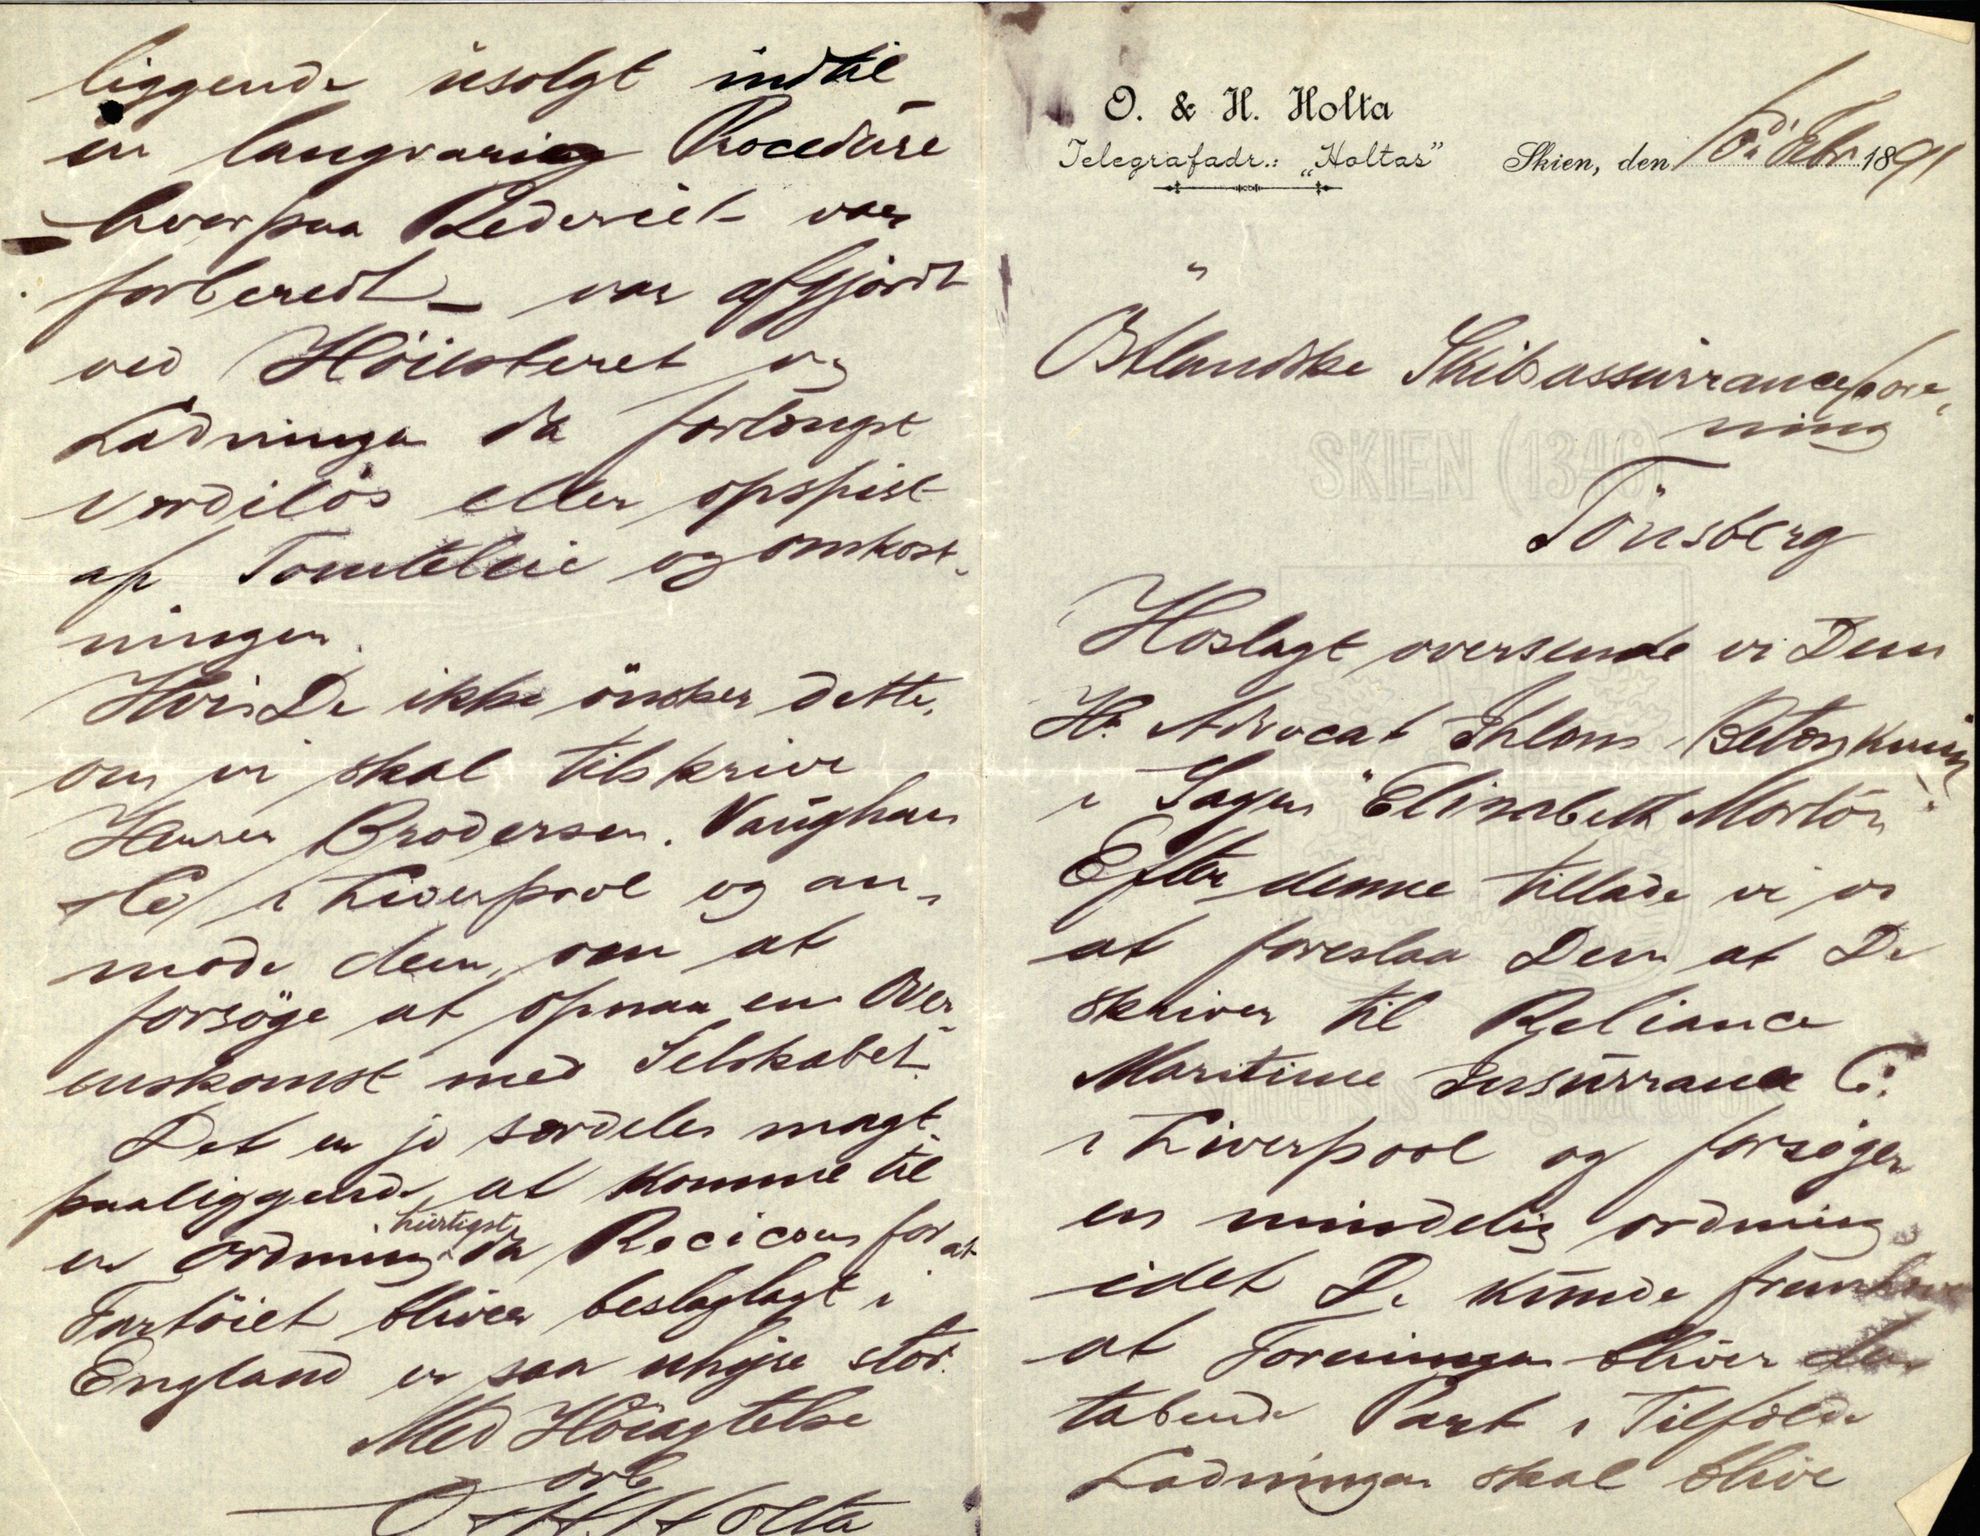 O. & H. Holta
Telegrafadr.: „Holtas”
Skien, den 10 Febr 1891
Østlandske Skibsassurrancefore,
ning
Tönsberg
Hoslagt oversende vi Dem
Hr. Advocat Ihlens Betænkning
i Sagen "Elizabeth Morton".
Efter denne tillade vi os
at foreslaa Dem at De
skriver til Reliance
Maritime Insurrance Co.
i Liverpool og forsøger
en mindelig ordning
idet De kunde fremhæve
at Foreningen bliver den
tabende Part i Tilfælde
Ladningen skal blive
liggende usolgt indtil
en langvarig Procedure
– hverpaa Rederiet var
forberedt – var afgjordt
ved Höiesteret og
Ladningen da forlængst
værdilös eller opspist
af Tomteleie og omkost-
ninger.
Hvis De ikke önsker dette,
om vi skal tilskrive
Herrer Brodersen, Vaughan
& Co i Liverpool og an-
mode dem, om at
forsöge at opnaa en Over-
enskomst med Selskabet.
Det er jo særdeles magt-
paaliggende, at komme til
en ordning hurtigst, da Recicoen for at
Fartöiet bliver beslaglagt i
England er saa uhyre stor.
Med Höiagtelse
ærb
O & H Holta
SKIEN (1346)